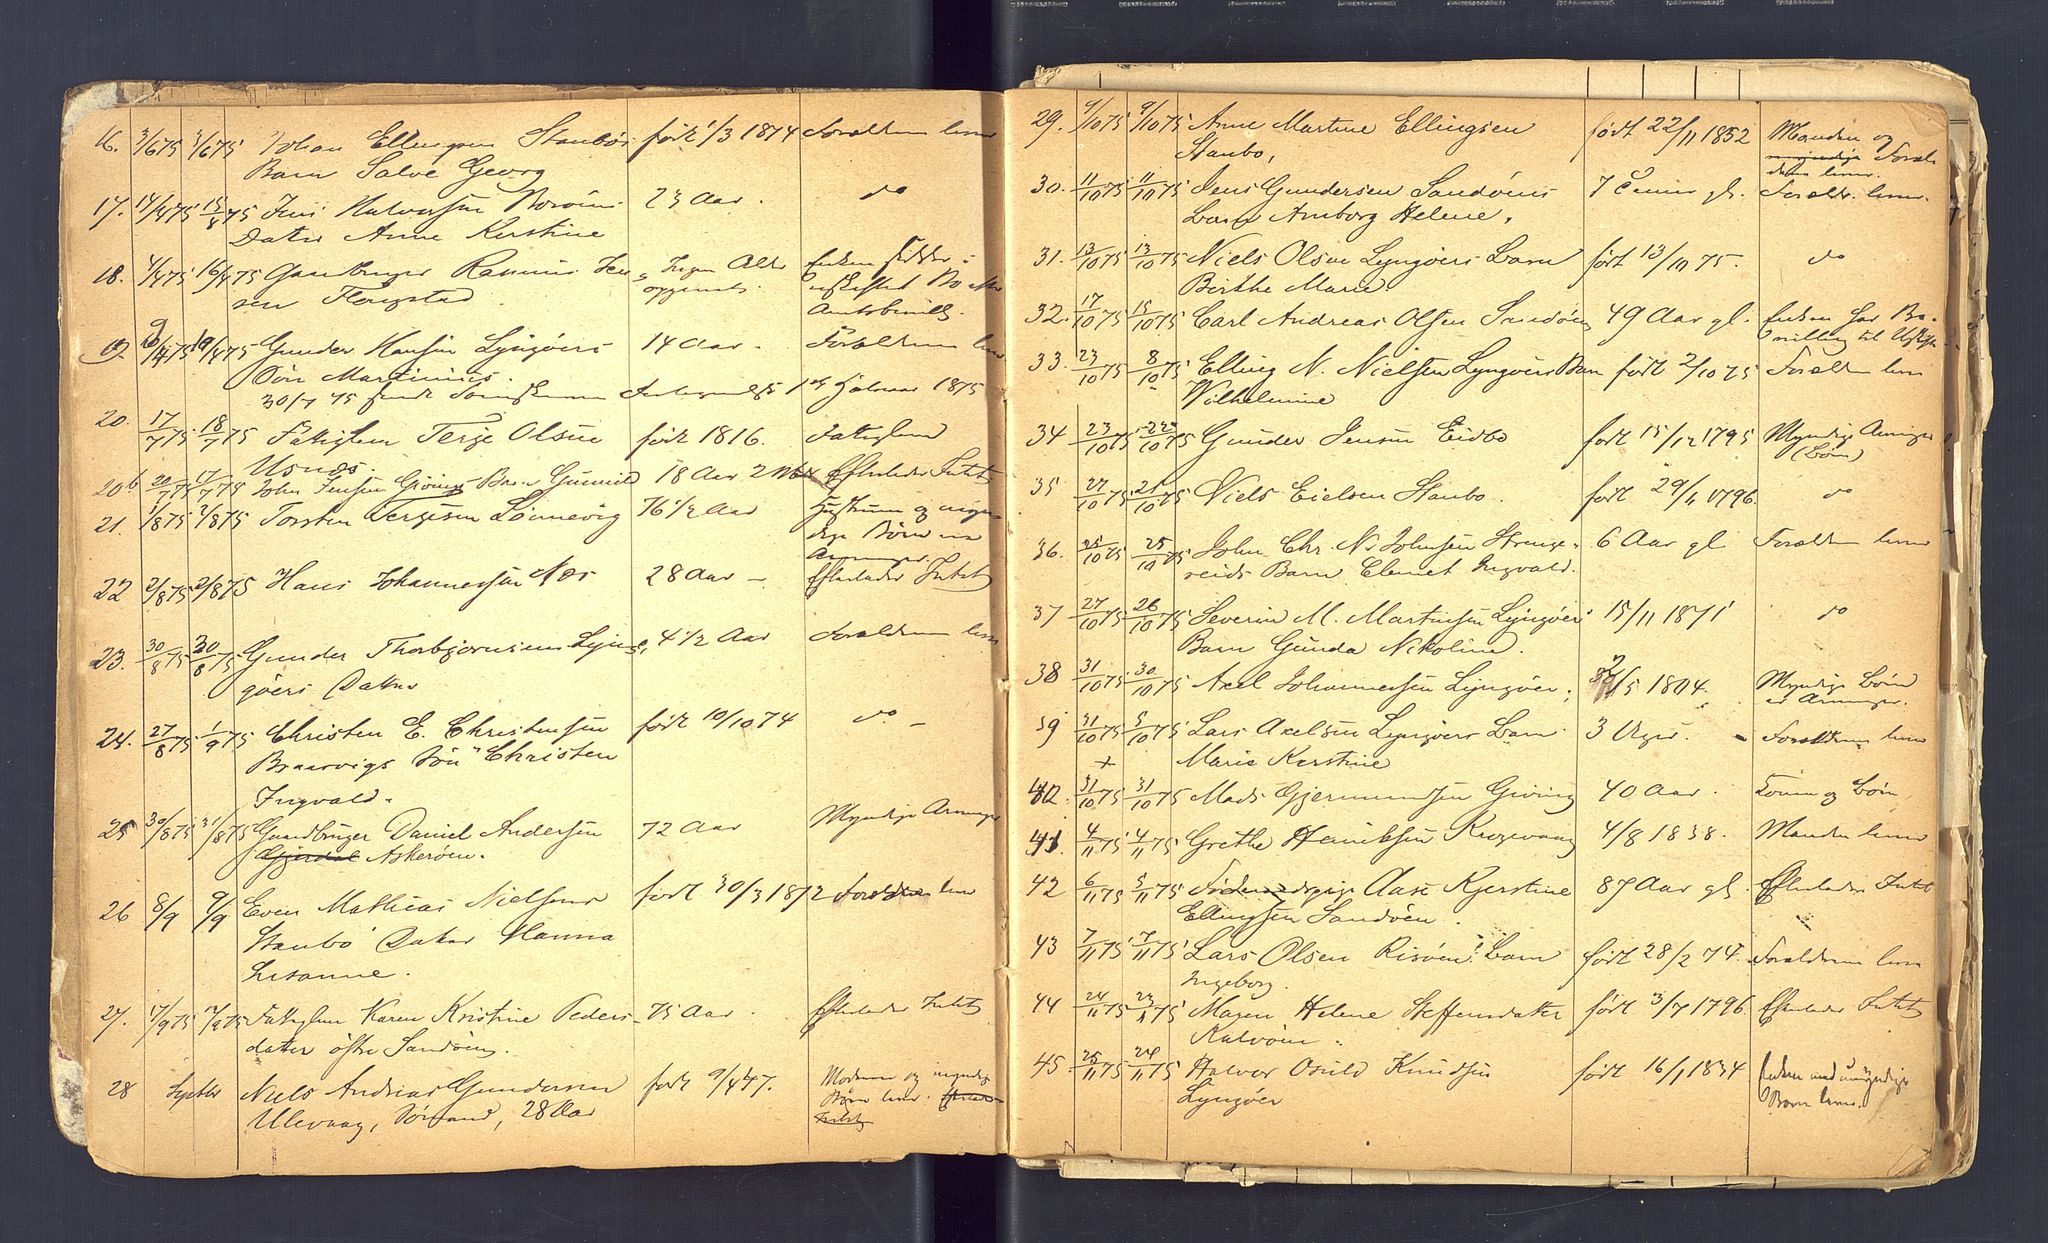 16. 3/6 75 3/6 75 Johan Ellingsen Staubø født 1/3 1874 Forældrene lever
Barn Salve Georg
17. 14/4 75 15/4 75 Jens Halvorsen 23 Aar. do
Datter Anne Kerstine
18. 4/4 75 16/4 75 Gaardbruger Rasmus Jen- Ingen Alder Enken sidder i
sen Flougstad opgivet. uskiftet Bo efter
19. 9/4 75 19/4 75 Gunder Hansen Lyngøers 14 Aar. Forældrene lever
Søn Martinius.
30/7 75 1875
20. 17/7 75 18/7 75 Fattiglem Terje Olsen født 1816. Fattiglem
Usnæs.
20b 20/7 75 17/7 75 John Jensen Giving Barn Gunnild 18 Aar 2 Efterlader Intet
21. 1/8 75 2/8 75 Torsten Tergesen Lønnevig 76 1/2 Aar Hustruen og myn-
dige Børn ere
Arvinger
22 2/8 75 2/8 75 Hans Johannessen Næs 28 Aar – Efterlader Intet
23. 30/8 75 30/8 75 Gunder Thorbjørnsens Lyn- 4 1/2 Aar Forældrene lever
gøers Datter
24. 27/8 75 1/9 75 Christen E. Christensen født 10/10 74 do –
Braarvigs Søn Christen
Ingvald.
25 30/8 75 31/8 75 Gaardbruger Daniel Andersen 72 Aar Myndige Arvinger
Gjerdal Askerøen.
26 8/9 9/9 Even Mathias Nielsens født 30/3 1872 Forældrene lever
Staubø Datter Hanna
Susanne.
27. 17/9 75 Fattiglem Karen Kristine Peders- 75 Aar. Efterlader Intet
datter østre Sandøen.
28 Septbr Niels Andreas Gundersen født 9/4 47. Moderen og myndige
Ulevaag, 28 Aar Børn lever. Efterlader
Intet
29. 9/10 75 9/10 75 Anne Martine Ellingsen født 22/11 1852 Manden og
Staubo, myndige Foræl-
drene lever.
30. 11/10 75 11/10 75 Jens Gundersen Sandøens 7 gl. Foræld. lever.
Barn Amborg Helene.
31. 13/10 75 13/10 75 Niels Olsen Lyngøers Barn født 13/10 75. do
Birthe Marie.
32. 17/10 75 15/10 75 Carl Andreas Olsen Sandøen 49 Aar gl. Enken har Be-
villing til
33. 23/10 75 8/10 75 Elling N. Nielsen Lyngøers Barn født 2/10 75 Forældrene lever
Wilhelmine
34 23/10 75 22/10 75 Gunder Jensen Eidbo født 15/12 1795 Myndige Arvinger
(Børn)
35 27/10 75 21/10 75 Niels Eielsen Staubo. født 29/1 1796. do
36. 25/10 75 25/10 75 John Chr. N. Johnsen Strenge- 6 Aar gl Forældrene lever
reids Barn Clemet Ingvald.
37 27/10 75 26/10 75 Severin M. Martinsen Lyngøer 15/11 1871 do
Barn Gunda Nikoline.
38 31/10 75 30/10 75 Axel Johannessen Lyngøer. /5 1804. Myndige Børn
er Arvinger.
39 31/10 75 5/10 75 Lars Axelsen Lyngøers Barn 3 Uger. – Forældrene lever
+ Marie Kerstine
40. 31/10 75 31/10 75 Mads Gjermundsen Giving 40 Aar. og Børn
41. 4/11 75 4/11 75 Grethe Henriksen Krogevaag 4/8 1838. Manden lever
42 6/11 75 5/11 75 Aase Kjerstine 87 Aar gl. Efterlader Intet
Ellingsen Sandøen.
43 7/11 75 7/11 75 Lars Olsen Risøens Barn født 28/2 74. Forældrene lever
Ingeborg.
44 24/11 75 23/11 75 Maren Helene Steffensdatter født 3/7 1796. Efterlader Intet
Kalvøen.
45 25/11 75 24/11 75 Halvor Osuld Knudsen født 16/1 1834 Enken med umyndige
Lyngøer Børn lever.